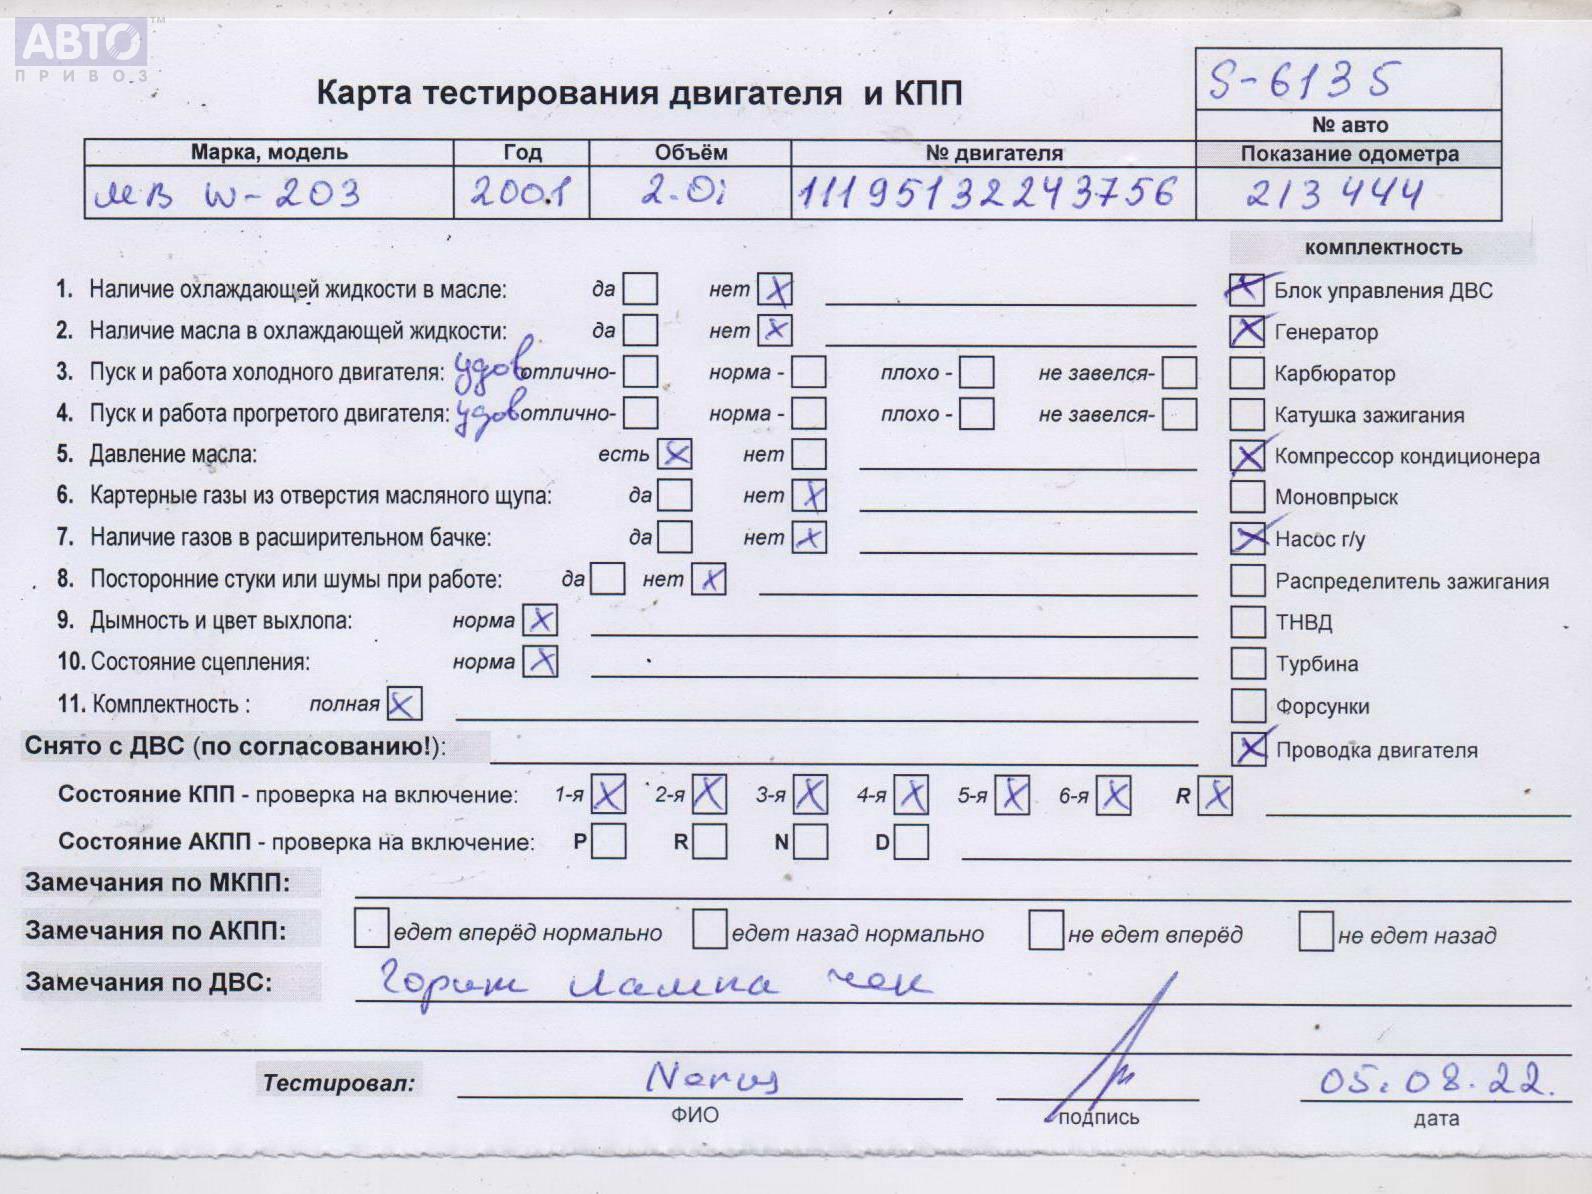 АВТО™
ПРИВОЗ
Карта тестирования двигателя и КПП
S-6135
№ авто
Марка, модель Год Объём № двигателя Показание одометра
МВ W-203 2001 2.0i 11195132243756 213444
комплектность
1. Наличие охлаждающей жидкости в масле: да нет X Блок управления ДВС X
2. Наличие масла в охлаждающей жидкости: да нет X Генератор X
3. Пуск и работа холодного двигателя: удов отлично- норма - плохо - не завелся- Карбюратор
4. Пуск и работа прогретого двигателя: удов отлично- норма - плохо - не завелся- Катушка зажигания
5. Давление масла: есть X нет X Компрессор кондиционера
6. Картерные газы из отверстия масляного щупа: да нет X Моновпрыск
7. Наличие газов в расширительном бачке: да нет X X Насос г/у
8. Посторонние стуки или шумы при работе: да нет X Распределитель зажигания
9. Дымность и цвет выхлопа: норма X ТНВД
10. Состояние сцепления: норма X Турбина
11. Комплектность : полная X Форсунки
Снято с ДВС (по согласованию!): X Проводка двигателя
Состояние КПП - проверка на включение: 1-я X 2-я X 3-я X 4-я X 5-я X 6-я X R X
Состояние АКПП - проверка на включение: P R N D
Замечания по МКПП:
Замечания по АКПП: едет вперёд нормально едет назад нормально не едет вперёд не едет назад
Замечания по ДВС: Горит лампа чек
Тестировал: 05.08.22.
ФИО подпись дата